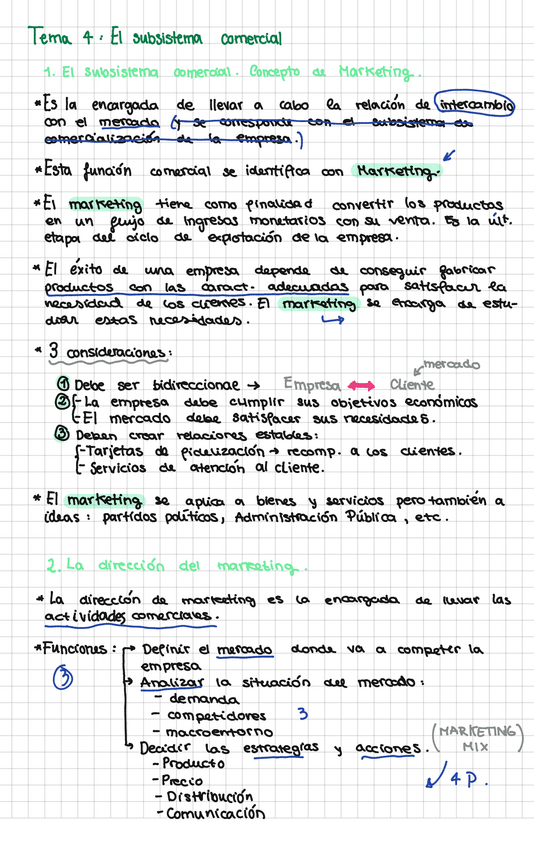 Tema 4: El subsistema comercial
1. El subsistema comercial. Concepto de Marketing.
* Es la encargada de llevar a cabo la relación de intercambio
con el mercado (y se corresponde con el subsistema de
comercialización de la empresa.)
* Esta función comercial se identifica con Marketing.
* El marketing tiene como finalidad convertir los productos
en un flujo de ingresos monetarios con su venta. Es la últ.
etapa del ciclo de explotación de la empresa.
* El éxito de una empresa depende de conseguir fabricar
productos con las caract. adecuadas para satisfacer la
necesidad de los clientes. El marketing se encarga de estu-
diar estas necesidades.
* 3 consideraciones:
mercado
① Debe ser bidireccional → Empresa ↔ Cliente
② - La empresa debe cumplir sus objetivos económicos
- El mercado debe satisfacer sus necesidades.
③ Deben crear relaciones estables:
- Tarjetas de fidelización → recomp. a los clientes.
- Servicios de atención al cliente.
* El marketing se aplica a bienes y servicios pero también a
ideas: partidos políticos, Administración Pública, etc.
2. La dirección del marketing.
* La dirección de marketing es la encargada de llevar las
actividades comerciales.
* Funciones: → Definir el mercado donde va a competir la
empresa
③ → Analizar la situación del mercado:
- demanda
- competidores 3
- macroentorno
→ Decidir las estrategias y acciones. (MARKETING MIX)
- Producto
4 P.
- Precio
- Distribución
- Comunicación